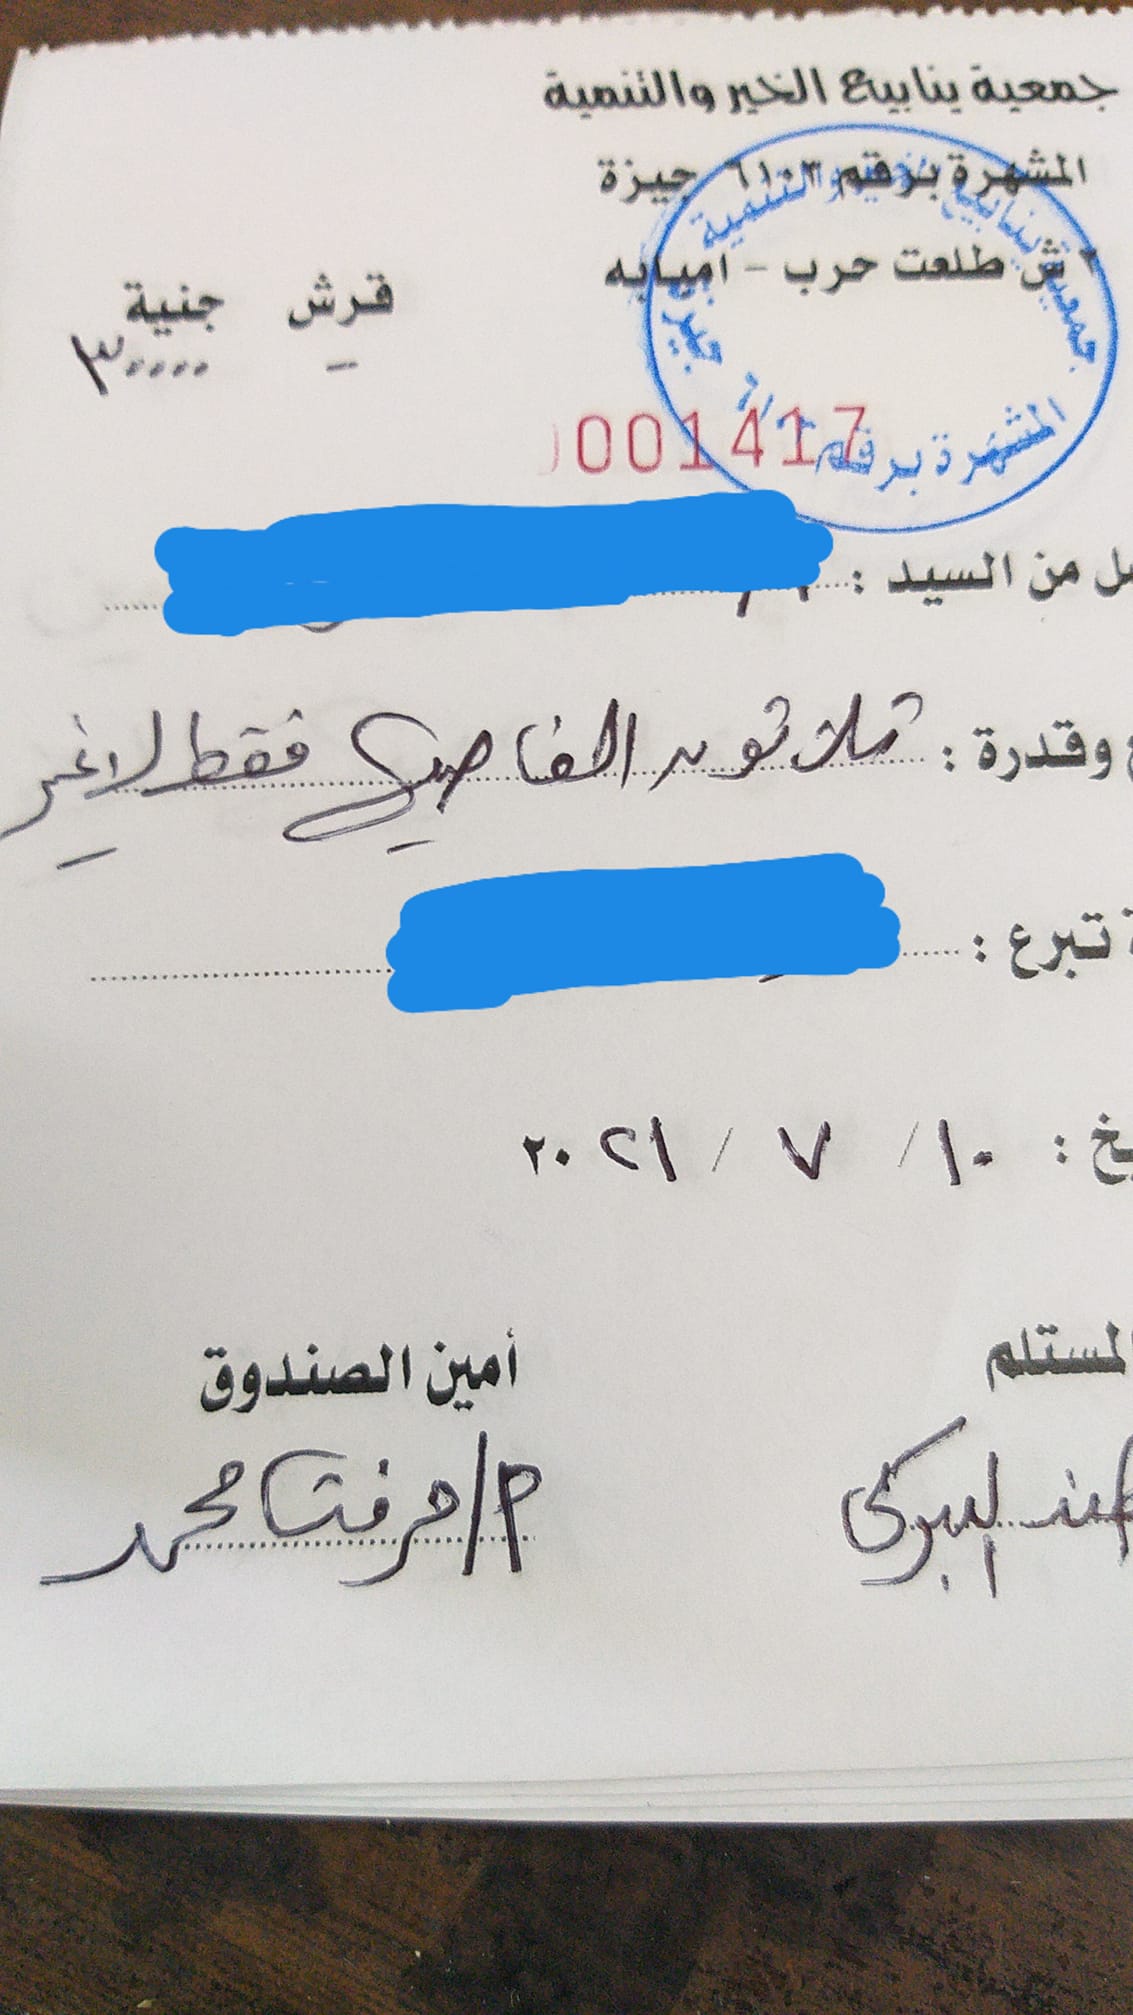 جمعية ينابيع الخير والتنمية
المشهرة برقم ٦١٠٣ جيزة
ش طلعت حرب - امبابه
قرش جنية
- ٣٠٠٠٠
001417
جمعية ينابيع الخير والتنمية جيزة
المشهرة برقم
من السيد :
وقدرة : ثلاثون الفا جنيه فقط لا غير
تبرع :
١٠ / ٧ / ٢٠٢١
المستلم أمين الصندوق
هند البركى م/مرفت محمد